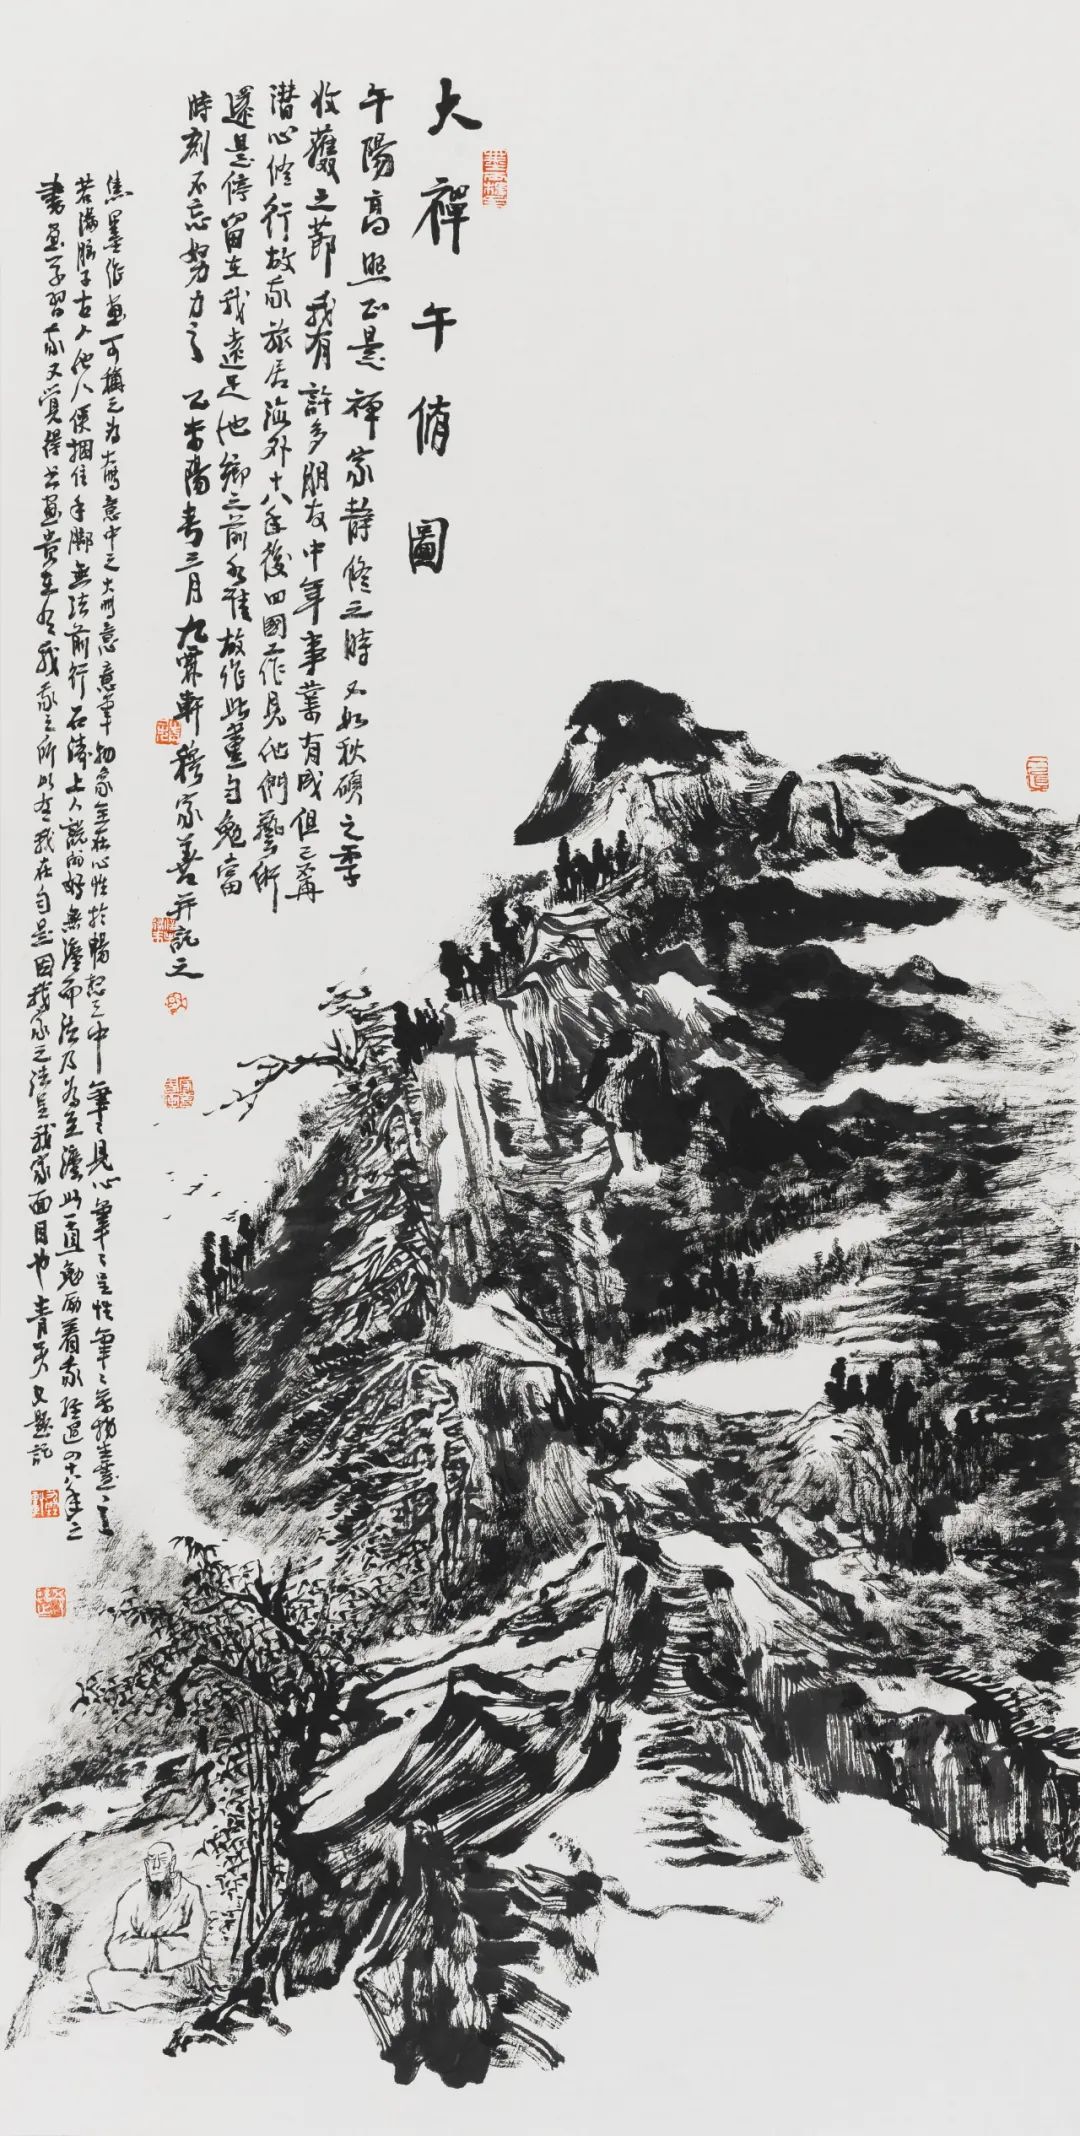 大禪午脩圖
午陽高照正是禪家靜修之時又如秋碩之季
收蘾之節我有許多朋友中年事業有成但已再
潜心修行故家旅居海外十八年後回國工作見他們藝術
還是停留在我遠足他鄉之前水准故作此畫自勉當
時刻不忘努力之 乙未陽春三月九霖軒 穆家善并記之
焦墨作畫可稱之為大寫意中之大寫意意筆物象全在心性於暢想之中筆筆見心筆筆呈性筆筆萬物生靈之
若滿腦子古人他人便捆住手腳無法前行石濤上人說的好無法而法乃為至法此一直勉勵着家經過四十八年之
書畫學習家又覺得書畫貴在有我家之所以有我在自是因我家之法呈我家面目也 青灵又題記